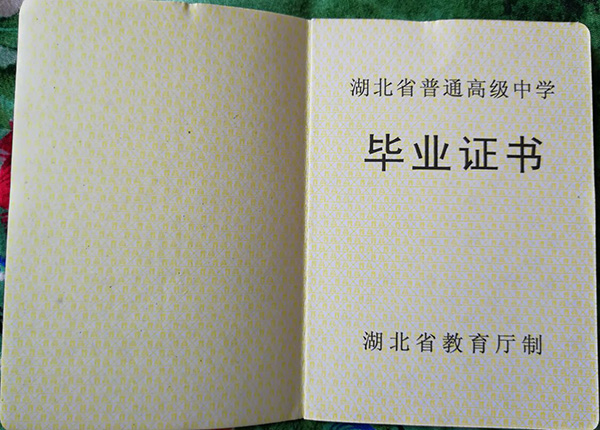 湖北省普通高级中学
毕业证书
湖北省教育厅制